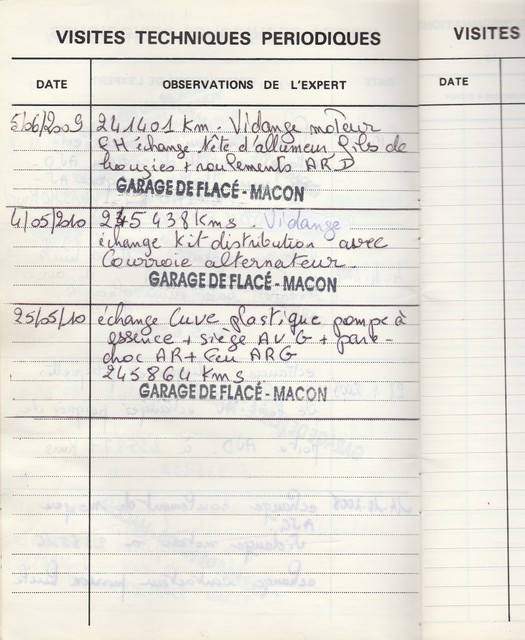 VISITES TECHNIQUES PERIODIQUES
VISITES
DATE
OBSERVATIONS DE L'EXPERT
DATE
5/06/2009 241401 Km. Vidange moteur
échange tête d'allumeur fils de
bougies + roulements ARD
GARAGE DE FLACÉ - MACON
4/05/2010 245438 Kms. Vidange
échange kit distribution avec
Courroie alternateur.
GARAGE DE FLACÉ - MACON
25/05/10 échange Cuve plastique pompe à
essence + siège AV G + pare-
choc AR + feu ARG
245864 Kms
GARAGE DE FLACÉ - MACON